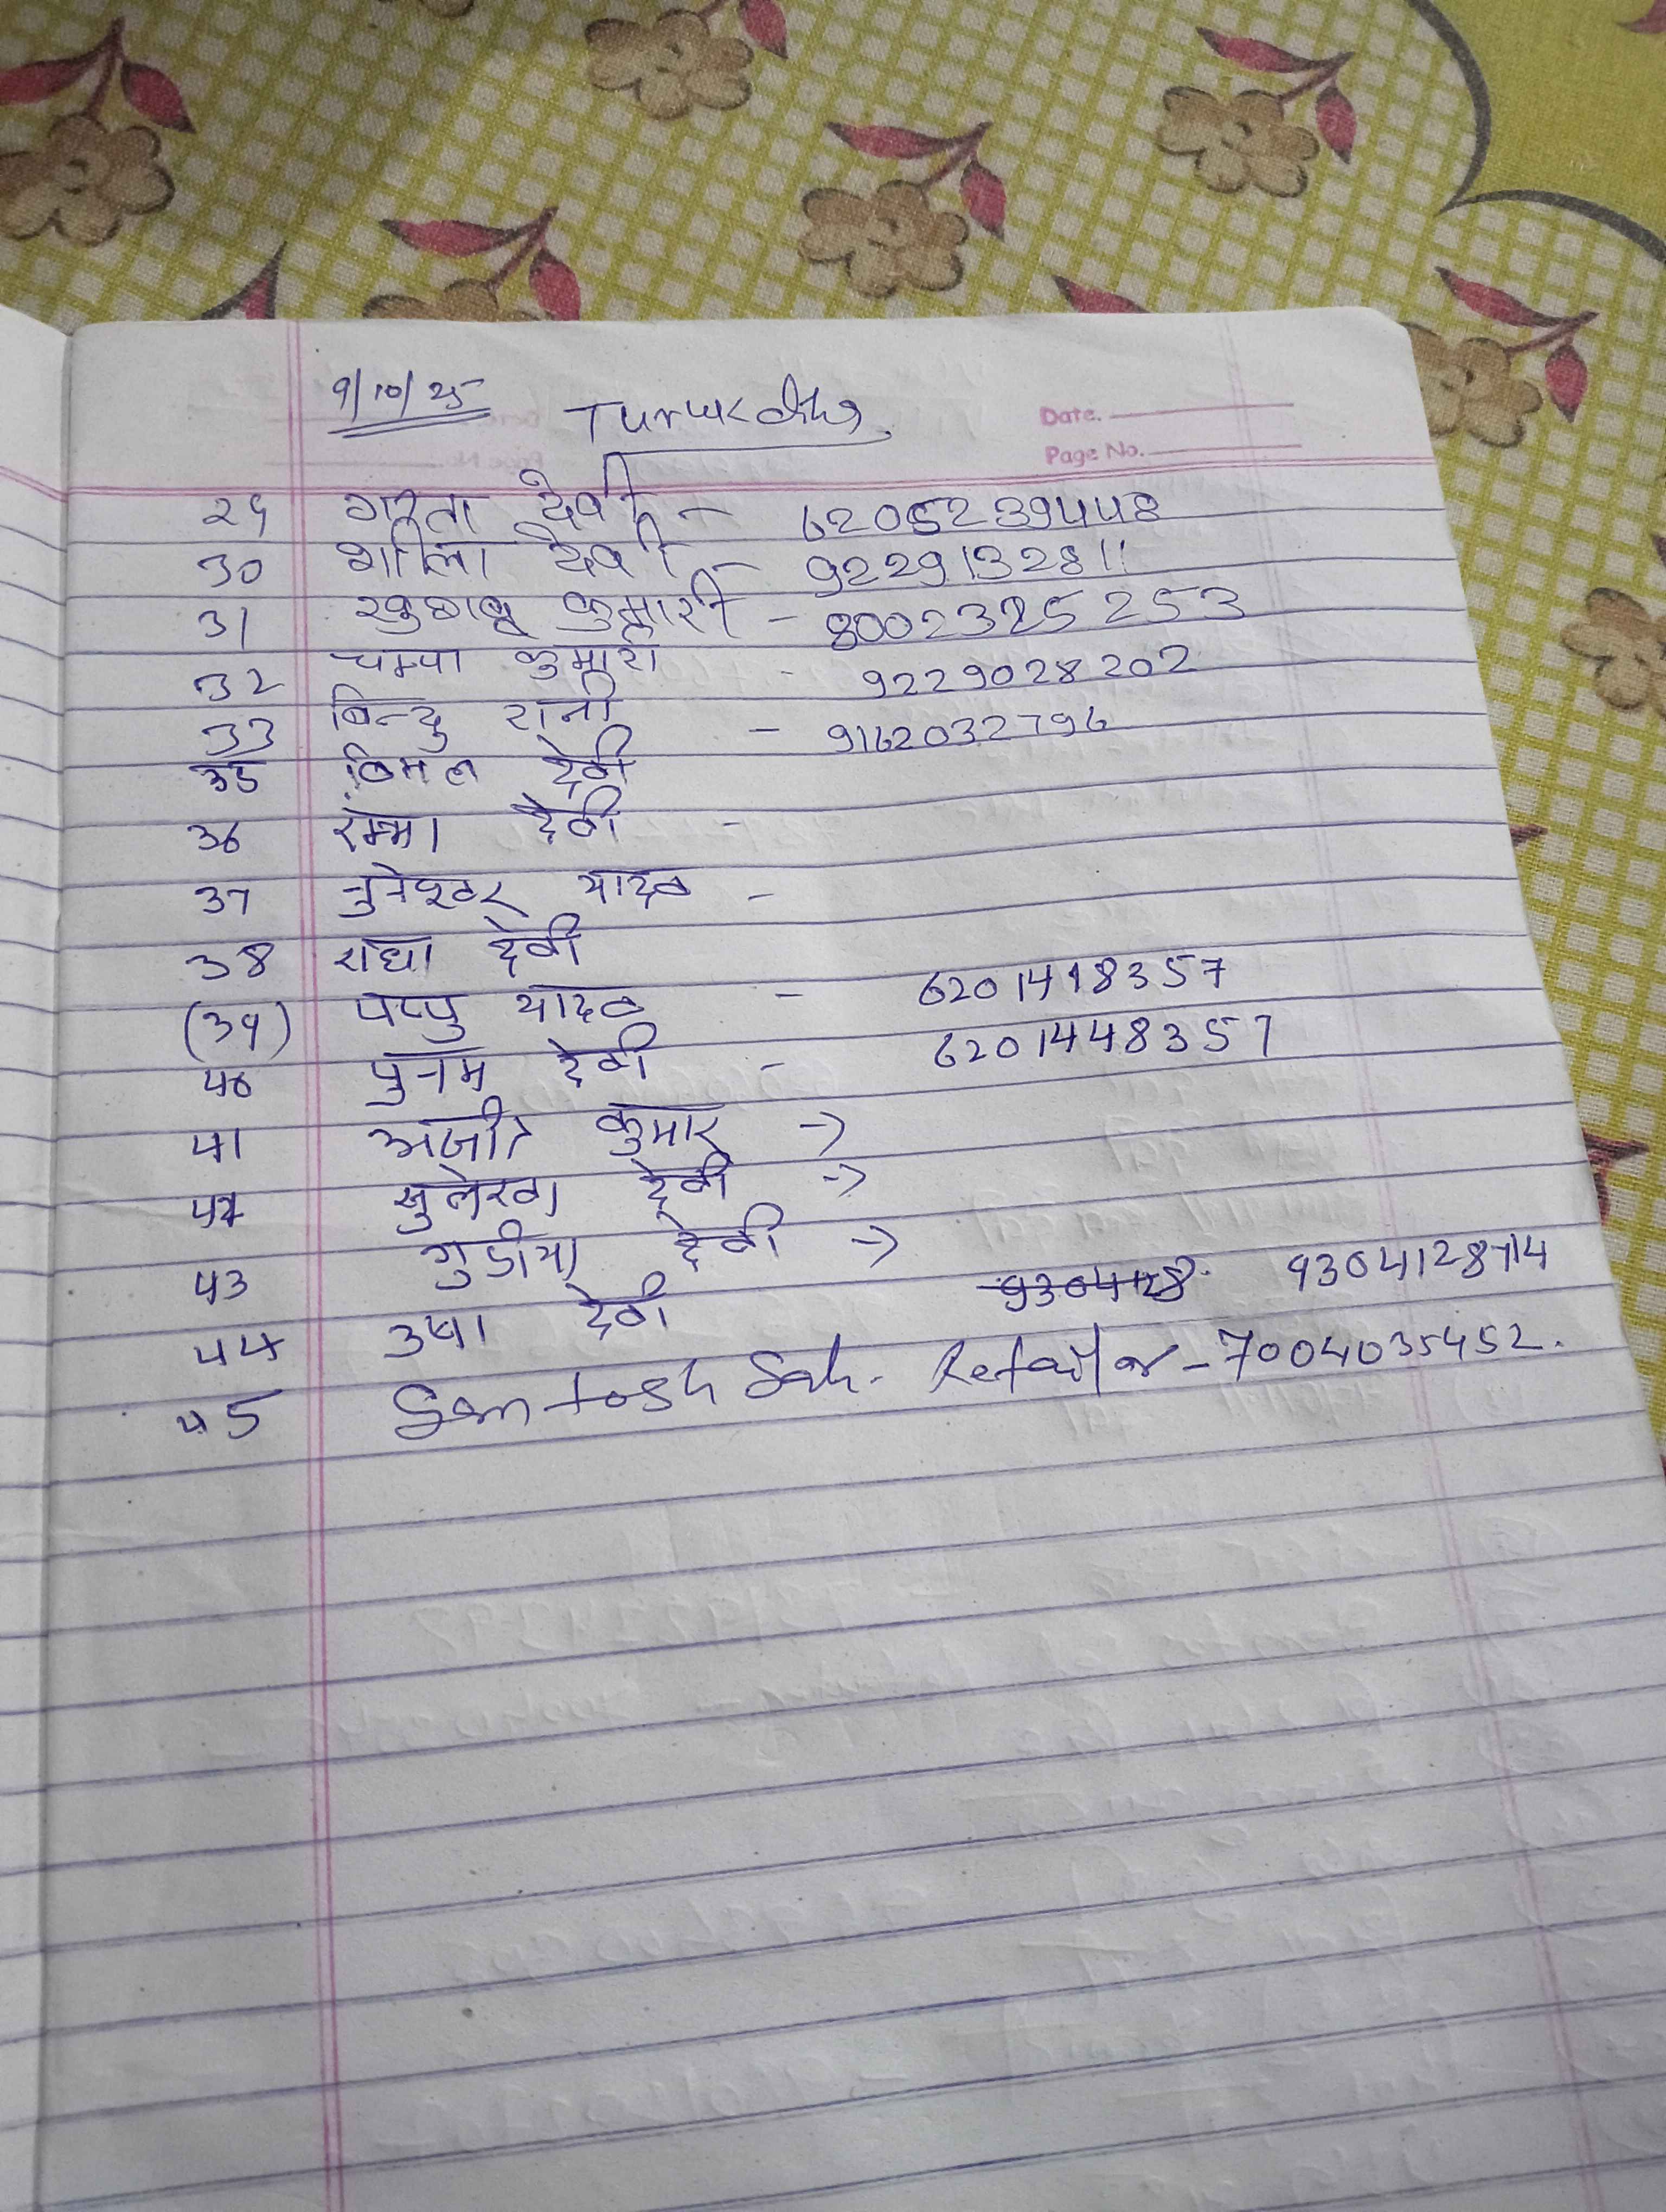 9/10/25
Turukdiha
Date.
Page No.
29 गीता देवी - 6205239448
30 शीला देवी - 9229132811
31 खुशबू कुमारी - 8002325253
32 चम्पा कुमारी - 9229028202
33 बिन्दु रानी - 9162032796
35 विमल देवी
36 रम्भा देवी -
37 नुनेश्वर यादव -
38 राधा देवी
(39) पप्पु यादव - 6201498357
40 पुनम देवी - 6201448357
41 अजीत कुमार →
42 सुलेखा देवी →
43 गुडीया देवी →
44 उषा देवी 930428 9304128714
45 Santosh Sah. Retailor - 7004035452.